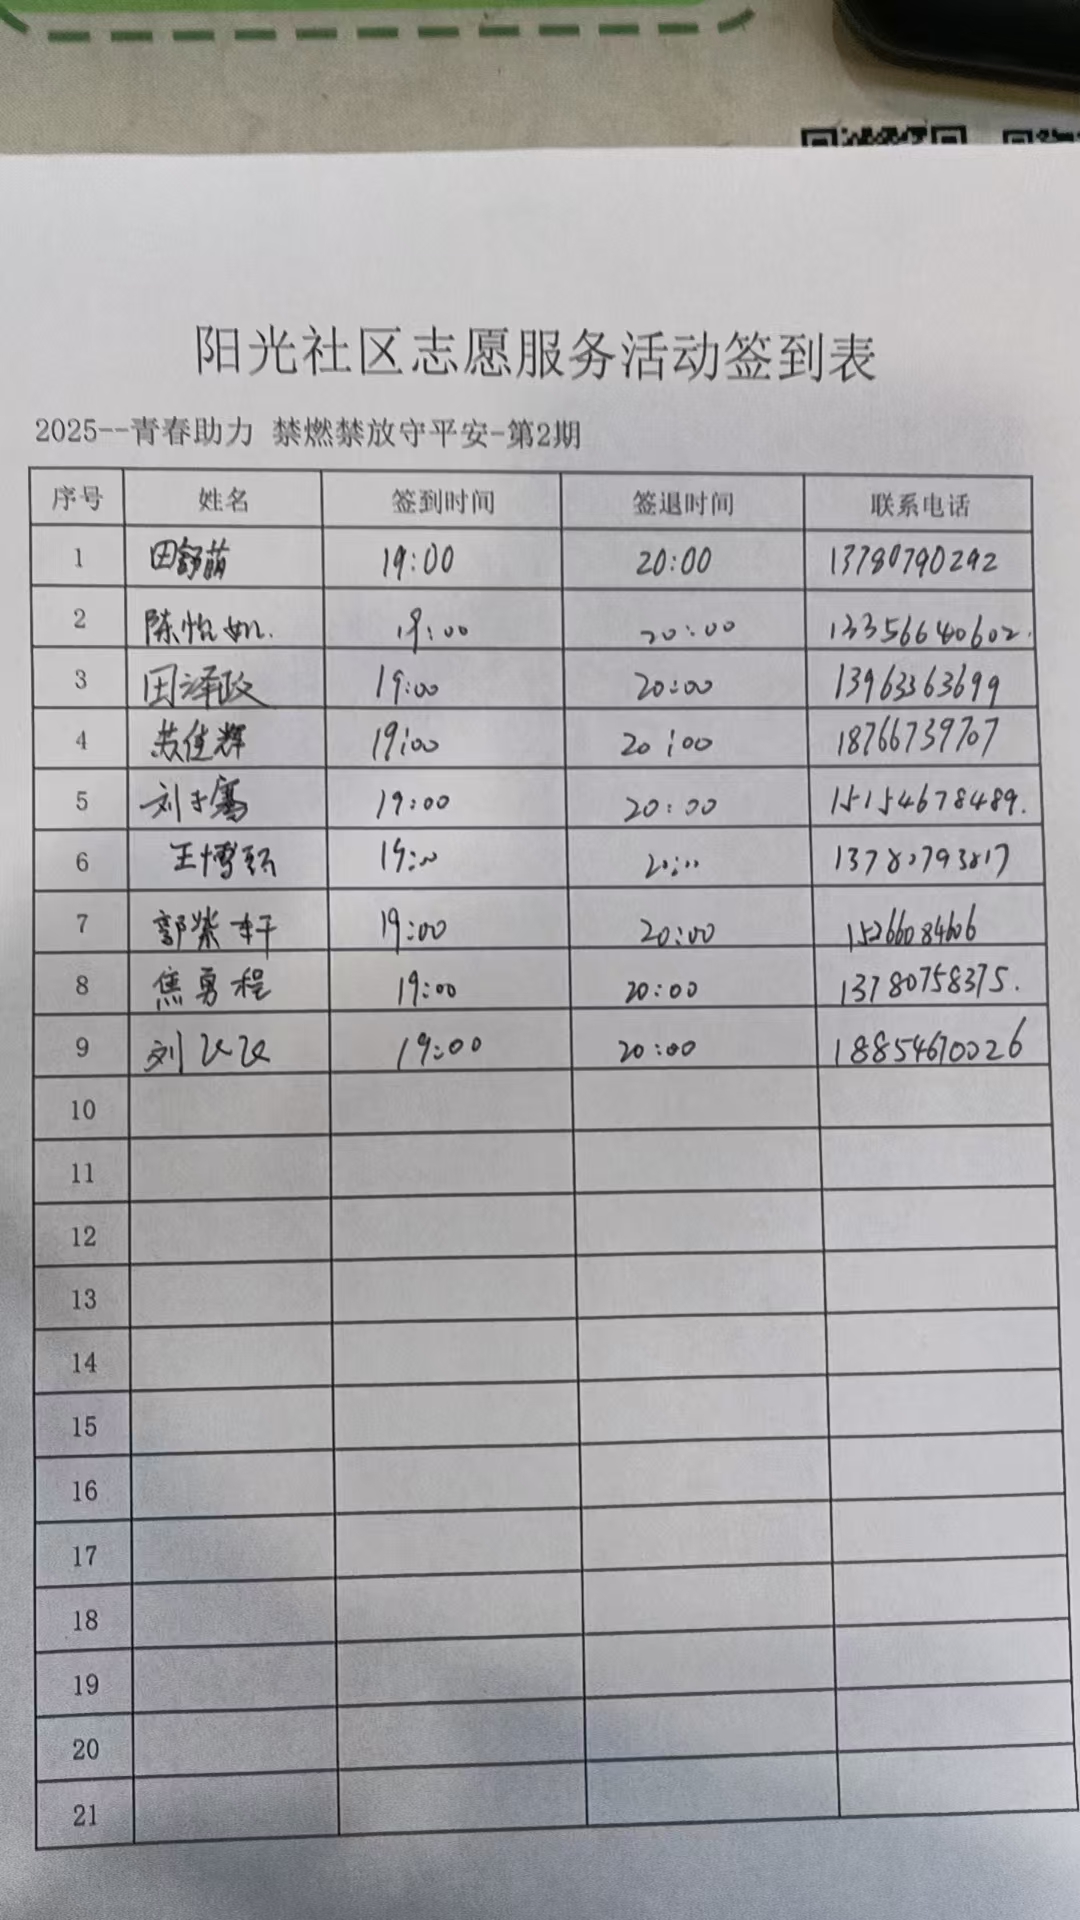 阳光社区志愿服务活动签到表
2025--青春助力 禁燃禁放守平安-第2期
序号 姓名 签到时间 签退时间 联系电话
1 田舒萌 19:00 20:00 13780790292
2 陈怡如. 19:00 20:00 13356640602.
3 田泽政 19:00 20:00 13963363699
4 苏佳辉 19:00 20:00 18766739707
5 刘子骞 19:00 20:00 15154678489.
6 王博 19:00 20:00 13780793817
7 郭紫轩 19:00 20:00 15266084606
8 焦勇程 19:00 20:00 13780758375.
9 刘 19:00 20:00 18854670026
10
11
12
13
14
15
16
17
18
19
20
21